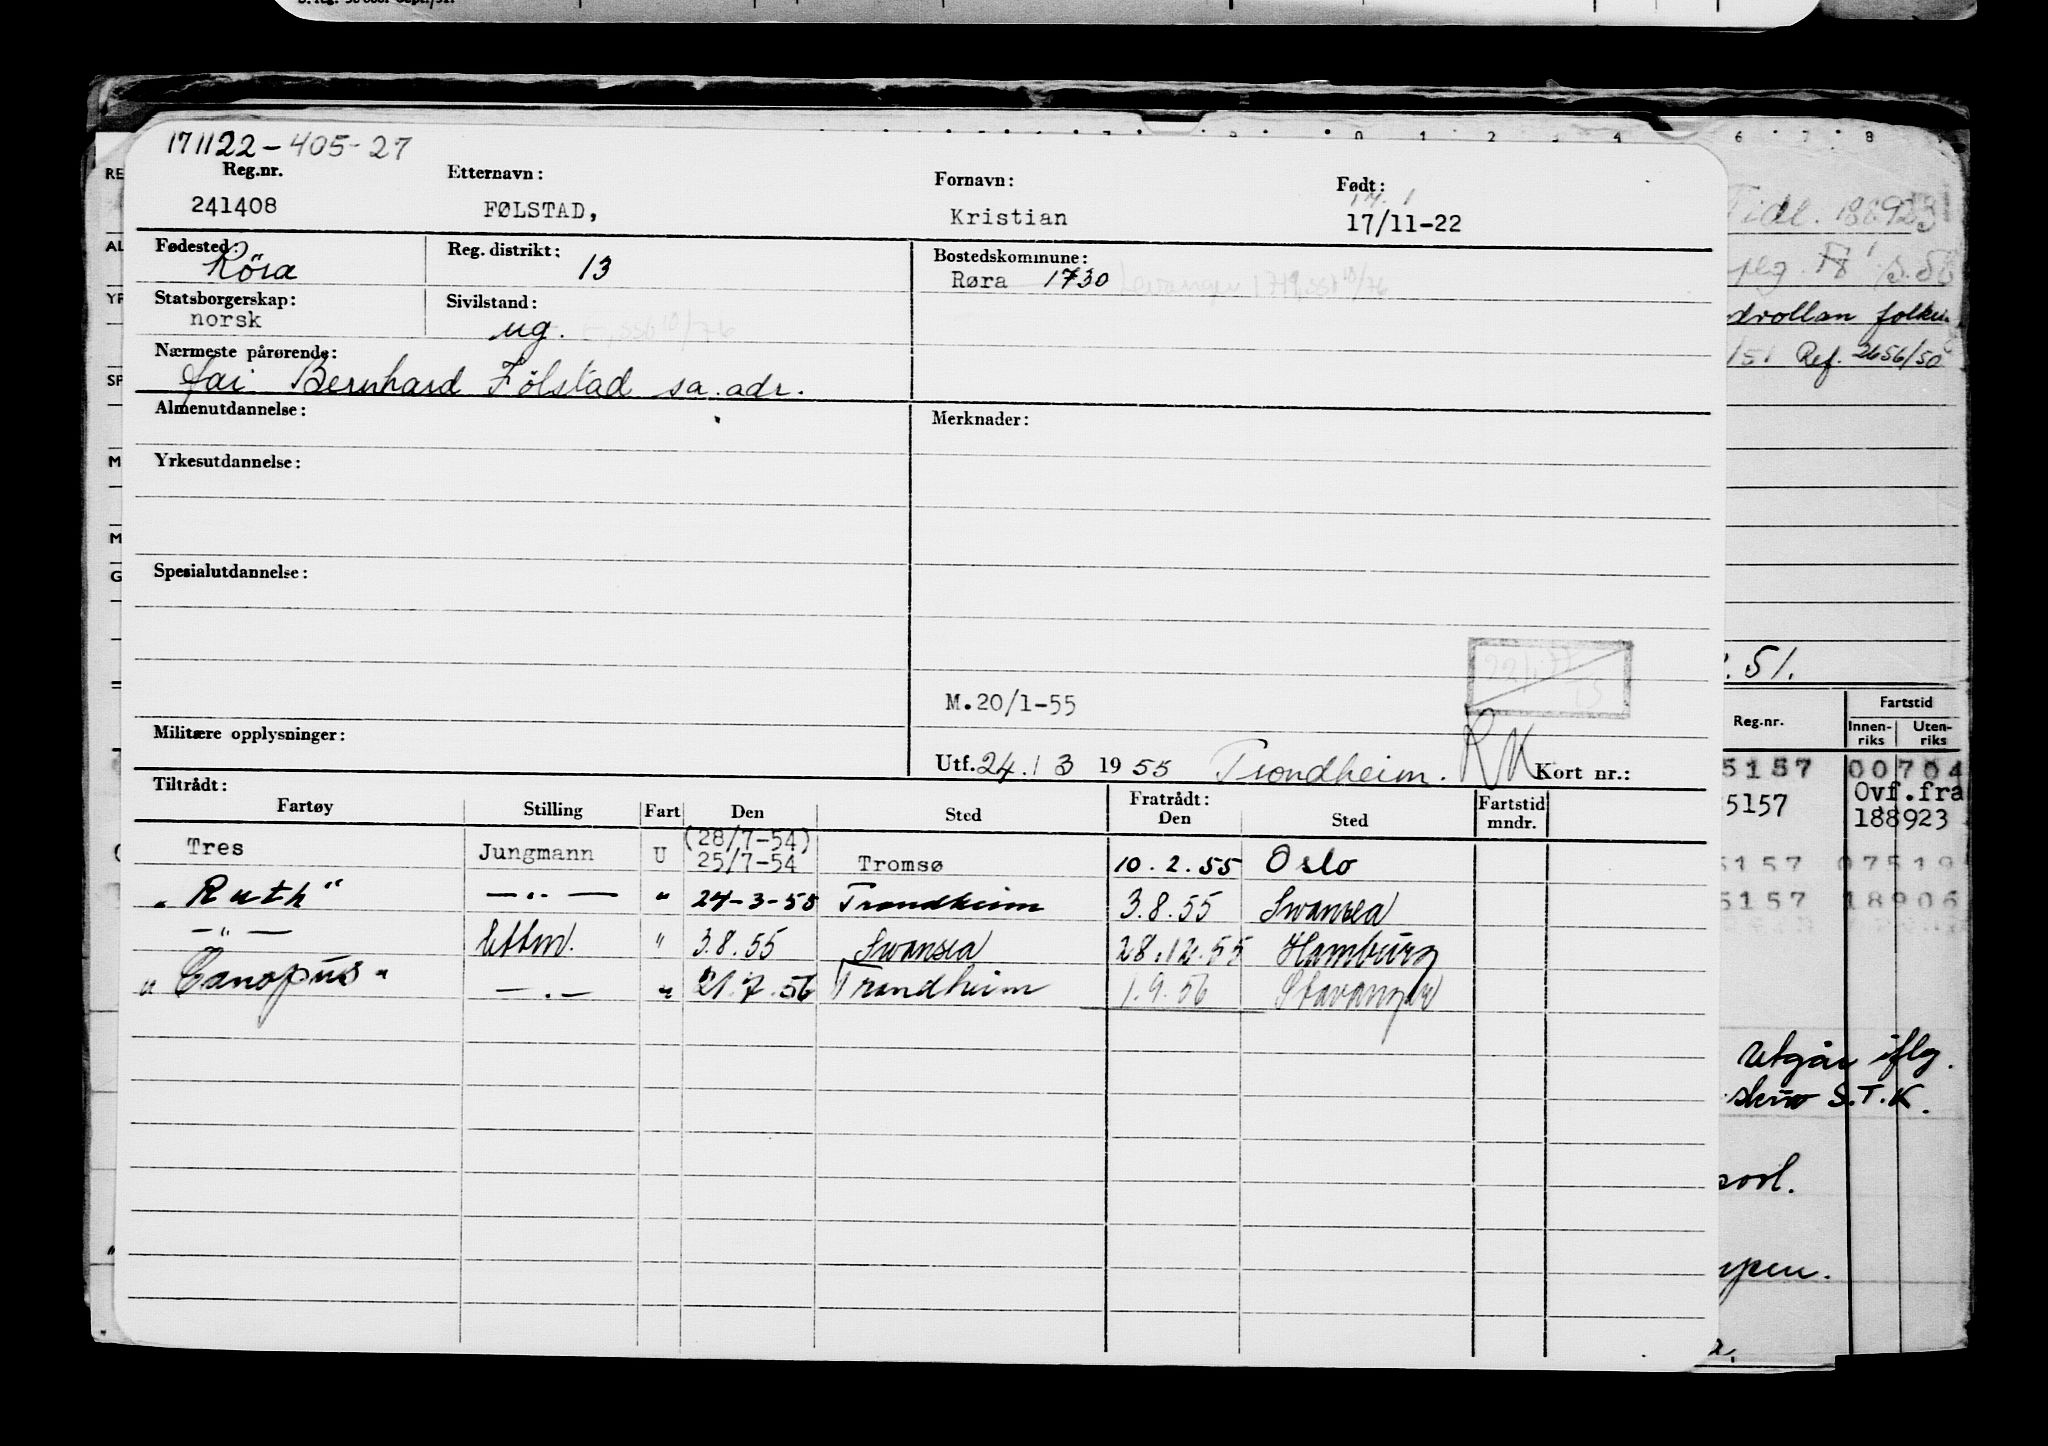 171122-405-27
Reg.nr. Etternavn: Fornavn: Født:
241408 FØLSTAD, Kristian 17/11-22
Fødested: Röra Reg. distrikt: 13 Bostedskommune: Røra 1730 Levanger 1719, ssb 10/76
Statsborgerskap: norsk Sivilstand: ug. ssb 10/76
Nærmeste pårørende:
far Bernhard Følstad sa. adr.
Almenutdannelse: Merknader:
Yrkesutdannelse:
Spesialutdannelse:
M.20/1-55
Militære opplysninger:
Utf. 24./3 1955 Trondheim. RK Kort nr.:
Tiltrådt: Fratrådt:
Fartøy Stilling Fart Den Sted Den Sted Fartstid mndr.
Tres Jungmann U (28/7-54) 25/7-54 Tromsø 10.2.55 Oslo
"Ruth" —"— " 24-3-55 Trondheim 3.8.55 Swansea
—"— lettm. " 3.8.55 Swansea 28.12.55 Hamburg
"Canopus" —"— " 21.7.56 Trondheim 1.9.56 Stavanger
Tidl. 188923
folke
/51 Ref. 2656/50
.51.
Reg.nr. Fartstid
Innen-riks Uten-riks
5157 00704
5157 Ovf.fra
188923
5157 07519
5157 18906
Utgår iflg.
skriv S.T.K.